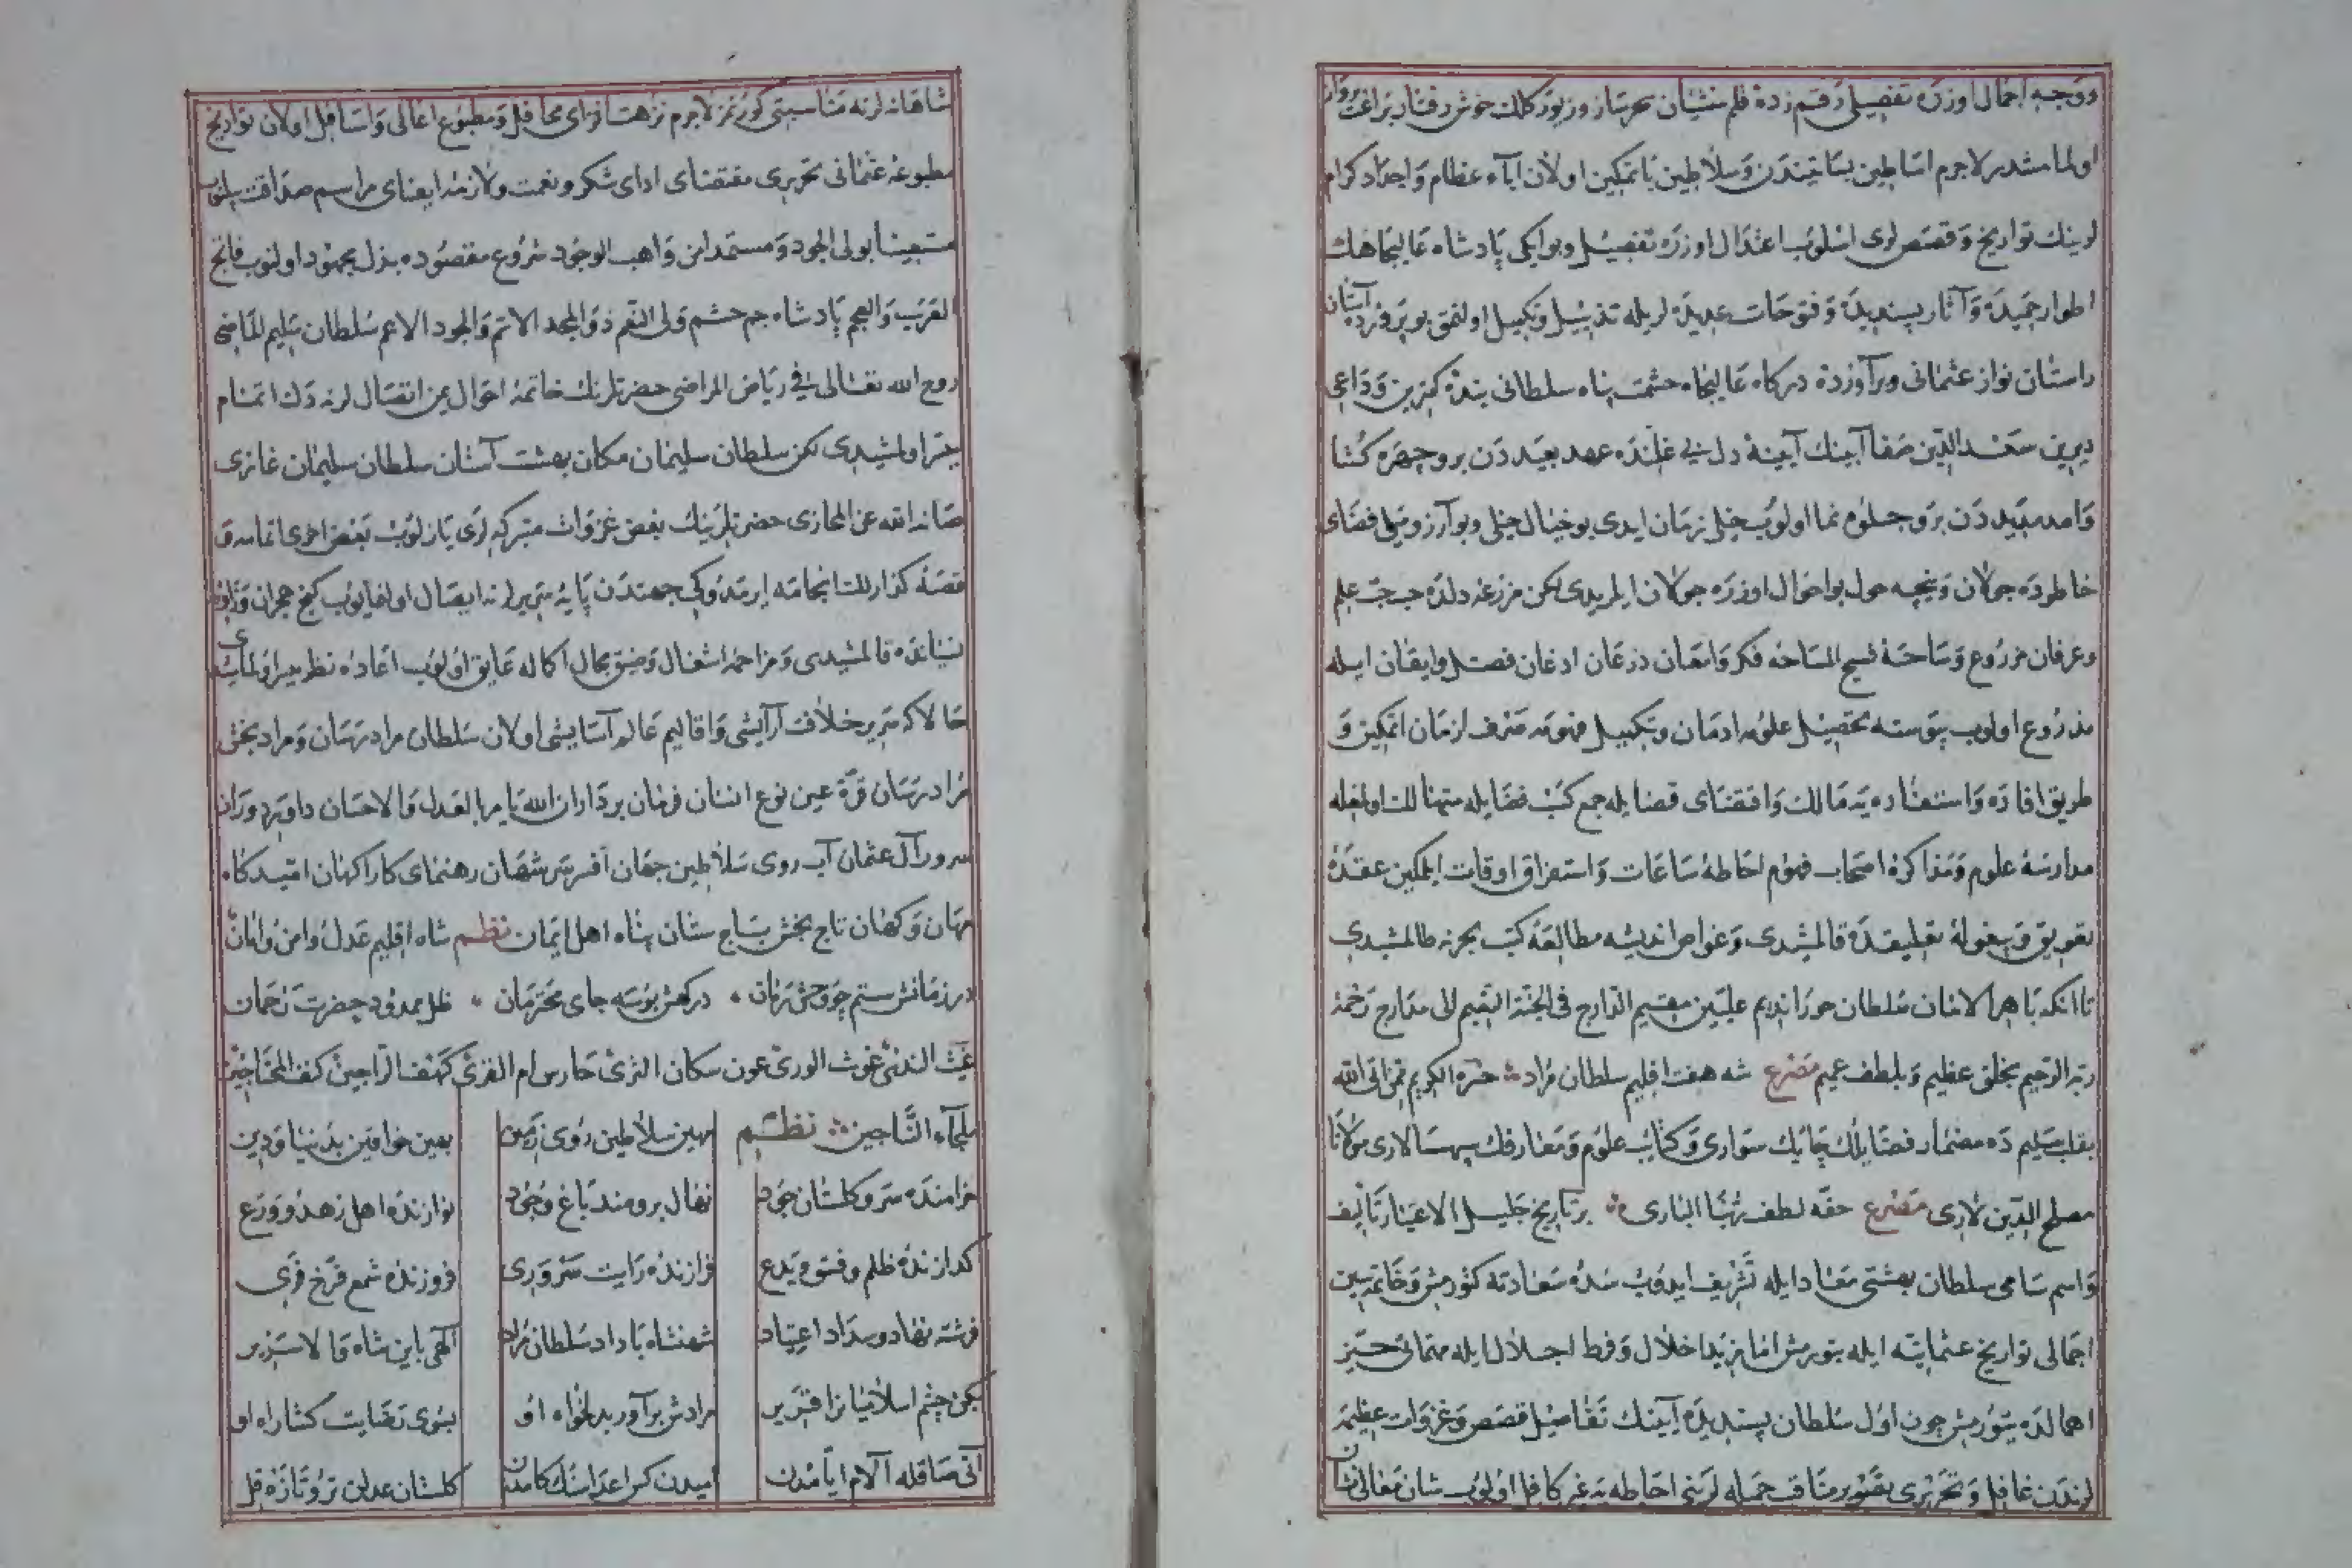 ووجه اجمال اوزره تفصيلى رقم زده قلم منشيان سحرساز وزبور كلك خوش رفتار براعت پرواز
اولمامشدر لاجرم اساطين بساتيندن وسلاطين باتمكين اولان آباء عظام واجداد كرام
لرينك تواريخ وقصص لرى اسلوب اعتدال اوزره تفصيل وبو ايكى پادشاه عاليجاهك
اطوار حميده وآثار پسنديده وفتوحات عديده لريله تذييل وتكميل اولنمق بو پرورده آستان
راستان نواز عثمانى وبرآورده دركاه عاليجاه حشمت پناه سلطانى بنده كمترين وداعى
ديرين سعد الدين صفا آيينك آيينه دل بى غلنده عهد بعيددن بروچهره كشا
وامد مديددن برو جلوه نما اولوب خيلى زمان ايدى بو خيال خيلى وبو آرزو ميلى فضاى
خاطرده جولان ونيجه حول بو احوال اوزره جولان ايلريدى لكن مزرعه دلده حب علم
وعرفان مزروع وساحه فسيح المساحه فكر وامعان ذرعان اذعان فصل وايقان ايله
مذروع اولوب پيوسته تحصيل علومه ادمان وتكميل فهومه صرف ازمان اتمكين و
طريق افاده واستفاده يه مالك واقتناى فضايله جمع كتب فضايله متهالك اولمغله
مدارسه علوم ومذاكره اصحاب فهوم احاطه ساعات واستغراق اوقات ايلمكين عقده
تعويق وپيغوله تعليقده قالمشيدى وغواص انديشه مطالعه كتب بحرينه طالمشيدى
تا انكه باهر الامان سلطان حورا نديم عليين مقيم الدارج فى الجنة النعيم الى مدارج رحمة
ربه الرحيم بخلق عظيم وبلطف عميم مصرع شه هفت اقليم سلطان مراد حشره الكريم فمن اتى الله
بقلب سليم ده مضمار فضايلك چابك سوارى وكتايب علوم ومعارفك سپهسالارى مولانا
مصلح الدين لارى مصرع حفه لطف ربنا البارى برتاريخ جليل الاعتبار تأليف
واسم سامى سلطان بهشتى معاد ايله تشريف ايدوب سده سعادته كتورمش وخاتمه سين
اجمالى تواريخ عثمانيه ايله بتورمش اما مزيد اخلال وفرط اجلال ايله مهمانى حيز
اهمالده يتورمش چون اول سلطان پسنديده آيينك تفاصيل قصص وغزوات عظيمه
لرندن غافل وتحريرى تصوير مناقب جميله لرينى احاطه يه غير كافل اولوب شان معالى نشان
شاهانه لرينه مناسبتى كورنمز لاجرم نزهت افزاى محافل ومطبوع اعالى واسافل اولان تواريخ
مطبوعه عثمانى تحريرى مقتضاى اداى شكر ونعمت ولازمه ايفاى مراسم صداقت بيلنوب
مستعينا بولى الجود ومستمدا من واهب الوجود شروع مقصوده بذل مجهود اولنوب فاتح
العرب والعجم پادشاه جم حشم ولى النعم ذو المجد الاتم والجود الاعم سلطان سليم الماضى
روح الله تعالى فى رياض المراضى حضرتلرينك خاتمه احوال يمن اتصال لرينه دك اتمام
ميسر اولمشيدى لكن سلطان سليمان مكان بهشت آستان سلطان سليمان غازى
صانه الله عن المخازى حضرتلرينك بعض غزوات متبركه لرى يازلوب بعض اخرى اتمامه و
قصه كذارلك انجامه ايرمدوكى جهتدن پايه سريرلرينه ايصال اولنمايوب كنج هجران وزاويه
نسيانده قالمشيدى ومزاحمه اشغال وضيق مجال اكماله عايق اولوب اعاده نظر ميسر اولمامشيدى
حالا كه سرير خلافت آرايشى واقاليم عالم آسايشى اولان سلطان مراد رسان ومراد بخش
مراد رسان قرة عين نوع انسان فرمان بردار ان الله يامر بالعدل والاحسان داور دوران
سرور آل عثمان آب روى سلاطين جهان افسر سر شهان رهنماى كار اكهان اميدكاه
مهان وكهان تاج بخش باج ستان پناه اهل ايمان نظم شاه اقليم عدل وامن وامان
در زمانش ستم چو وحش رمان دركهش بوسه جاى محترمان ظل ممدود حضرت رحمان
غيث الندى غوث الورى عون سكان الثرى حارس ام القرى كهف الراجين كنف المحتاجين
ملجاء الناجين نظم مهين سلاطين روى زمين بهين خواقين بدنيا ودين
خرامنده سرو كلستان جود نهال برومند باغ وجود نوازنده اهل زهد وورع
كدازنده ظلم وفسق وبدع فرازنده رايت سرورى فروزنده شمع فرخ فرى
فرشته نهاد وسداد اعتياد شهنشاه با داد سلطان مراد الهى باين شاه والا سرير
بكن چشم اسلاميانرا قرير مرادش برآور بدلخواه او بسوى رضايت كشا راه او
آنى ساقله آلام ايامدن اميدن كس اعداسنك كامدن كلستان عدلن تر وتازه قل